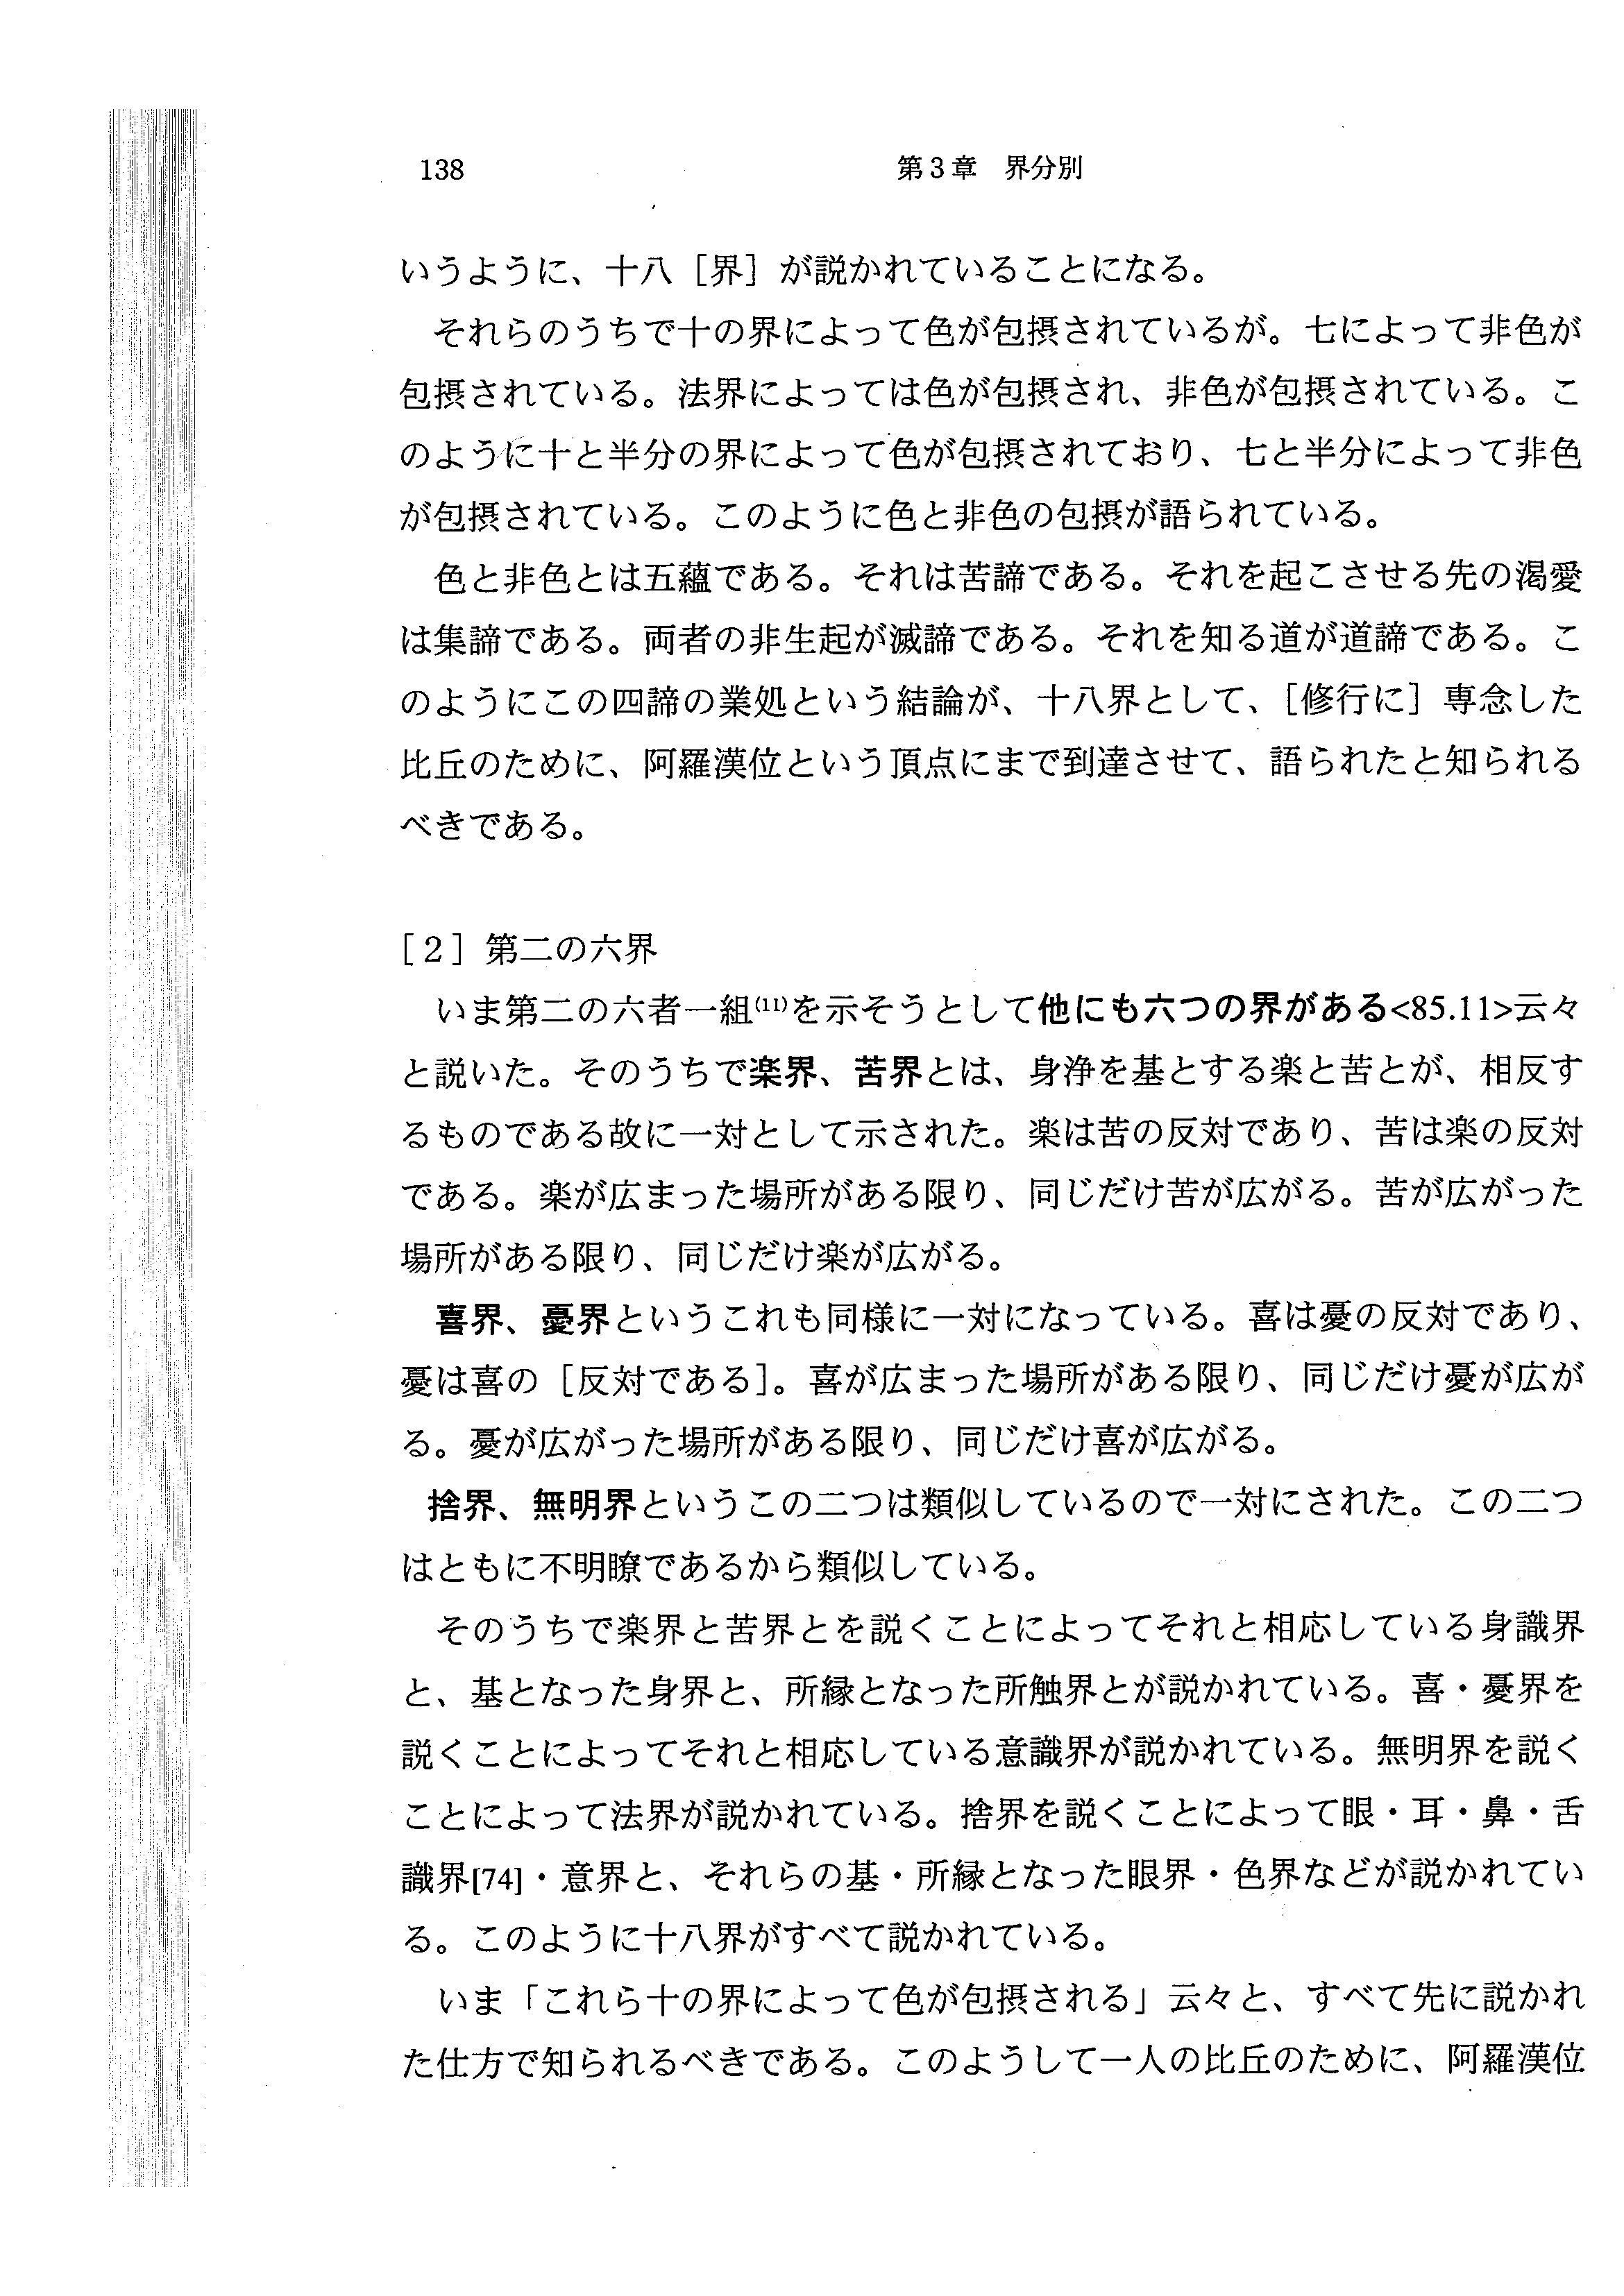 138
第3章　界分別
いうように、十八［界］が説かれていることになる。
それらのうちで十の界によって色が包摂されているが。七によって非色が
包摂されている。法界によっては色が包摂され、非色が包摂されている。こ
のように十と半分の界によって色が包摂されており、七と半分によって非色
が包摂されている。このように色と非色の包摂が語られている。
色と非色とは五蘊である。それは苦諦である。それを起こさせる先の渇愛
は集諦である。両者の非生起が滅諦である。それを知る道が道諦である。こ
のようにこの四諦の業処という結論が、十八界として、［修行に］専念した
比丘のために、阿羅漢位という頂点にまで到達させて、語られたと知られる
べきである。
［2］第二の六界
いま第二の六者一組(11)を示そうとして他にも六つの界がある<85.11>云々
と説いた。そのうちで楽界、苦界とは、身浄を基とする楽と苦とが、相反す
るものである故に一対として示された。楽は苦の反対であり、苦は楽の反対
である。楽が広まった場所がある限り、同じだけ苦が広がる。苦が広がった
場所がある限り、同じだけ楽が広がる。
喜界、憂界というこれも同様に一対になっている。喜は憂の反対であり、
憂は喜の［反対である］。喜が広まった場所がある限り、同じだけ憂が広が
る。憂が広がった場所がある限り、同じだけ喜が広がる。
捨界、無明界というこの二つは類似しているので一対にされた。この二つ
はともに不明瞭であるから類似している。
そのうちで楽界と苦界とを説くことによってそれと相応している身識界
と、基となった身界と、所縁となった所触界とが説かれている。喜・憂界を
説くことによってそれと相応している意識界が説かれている。無明界を説く
ことによって法界が説かれている。捨界を説くことによって眼・耳・鼻・舌
識界[74]・意界と、それらの基・所縁となった眼界・色界などが説かれてい
る。このように十八界がすべて説かれている。
いま「これら十の界によって色が包摂される」云々と、すべて先に説かれ
た仕方で知られるべきである。このようして一人の比丘のために、阿羅漢位